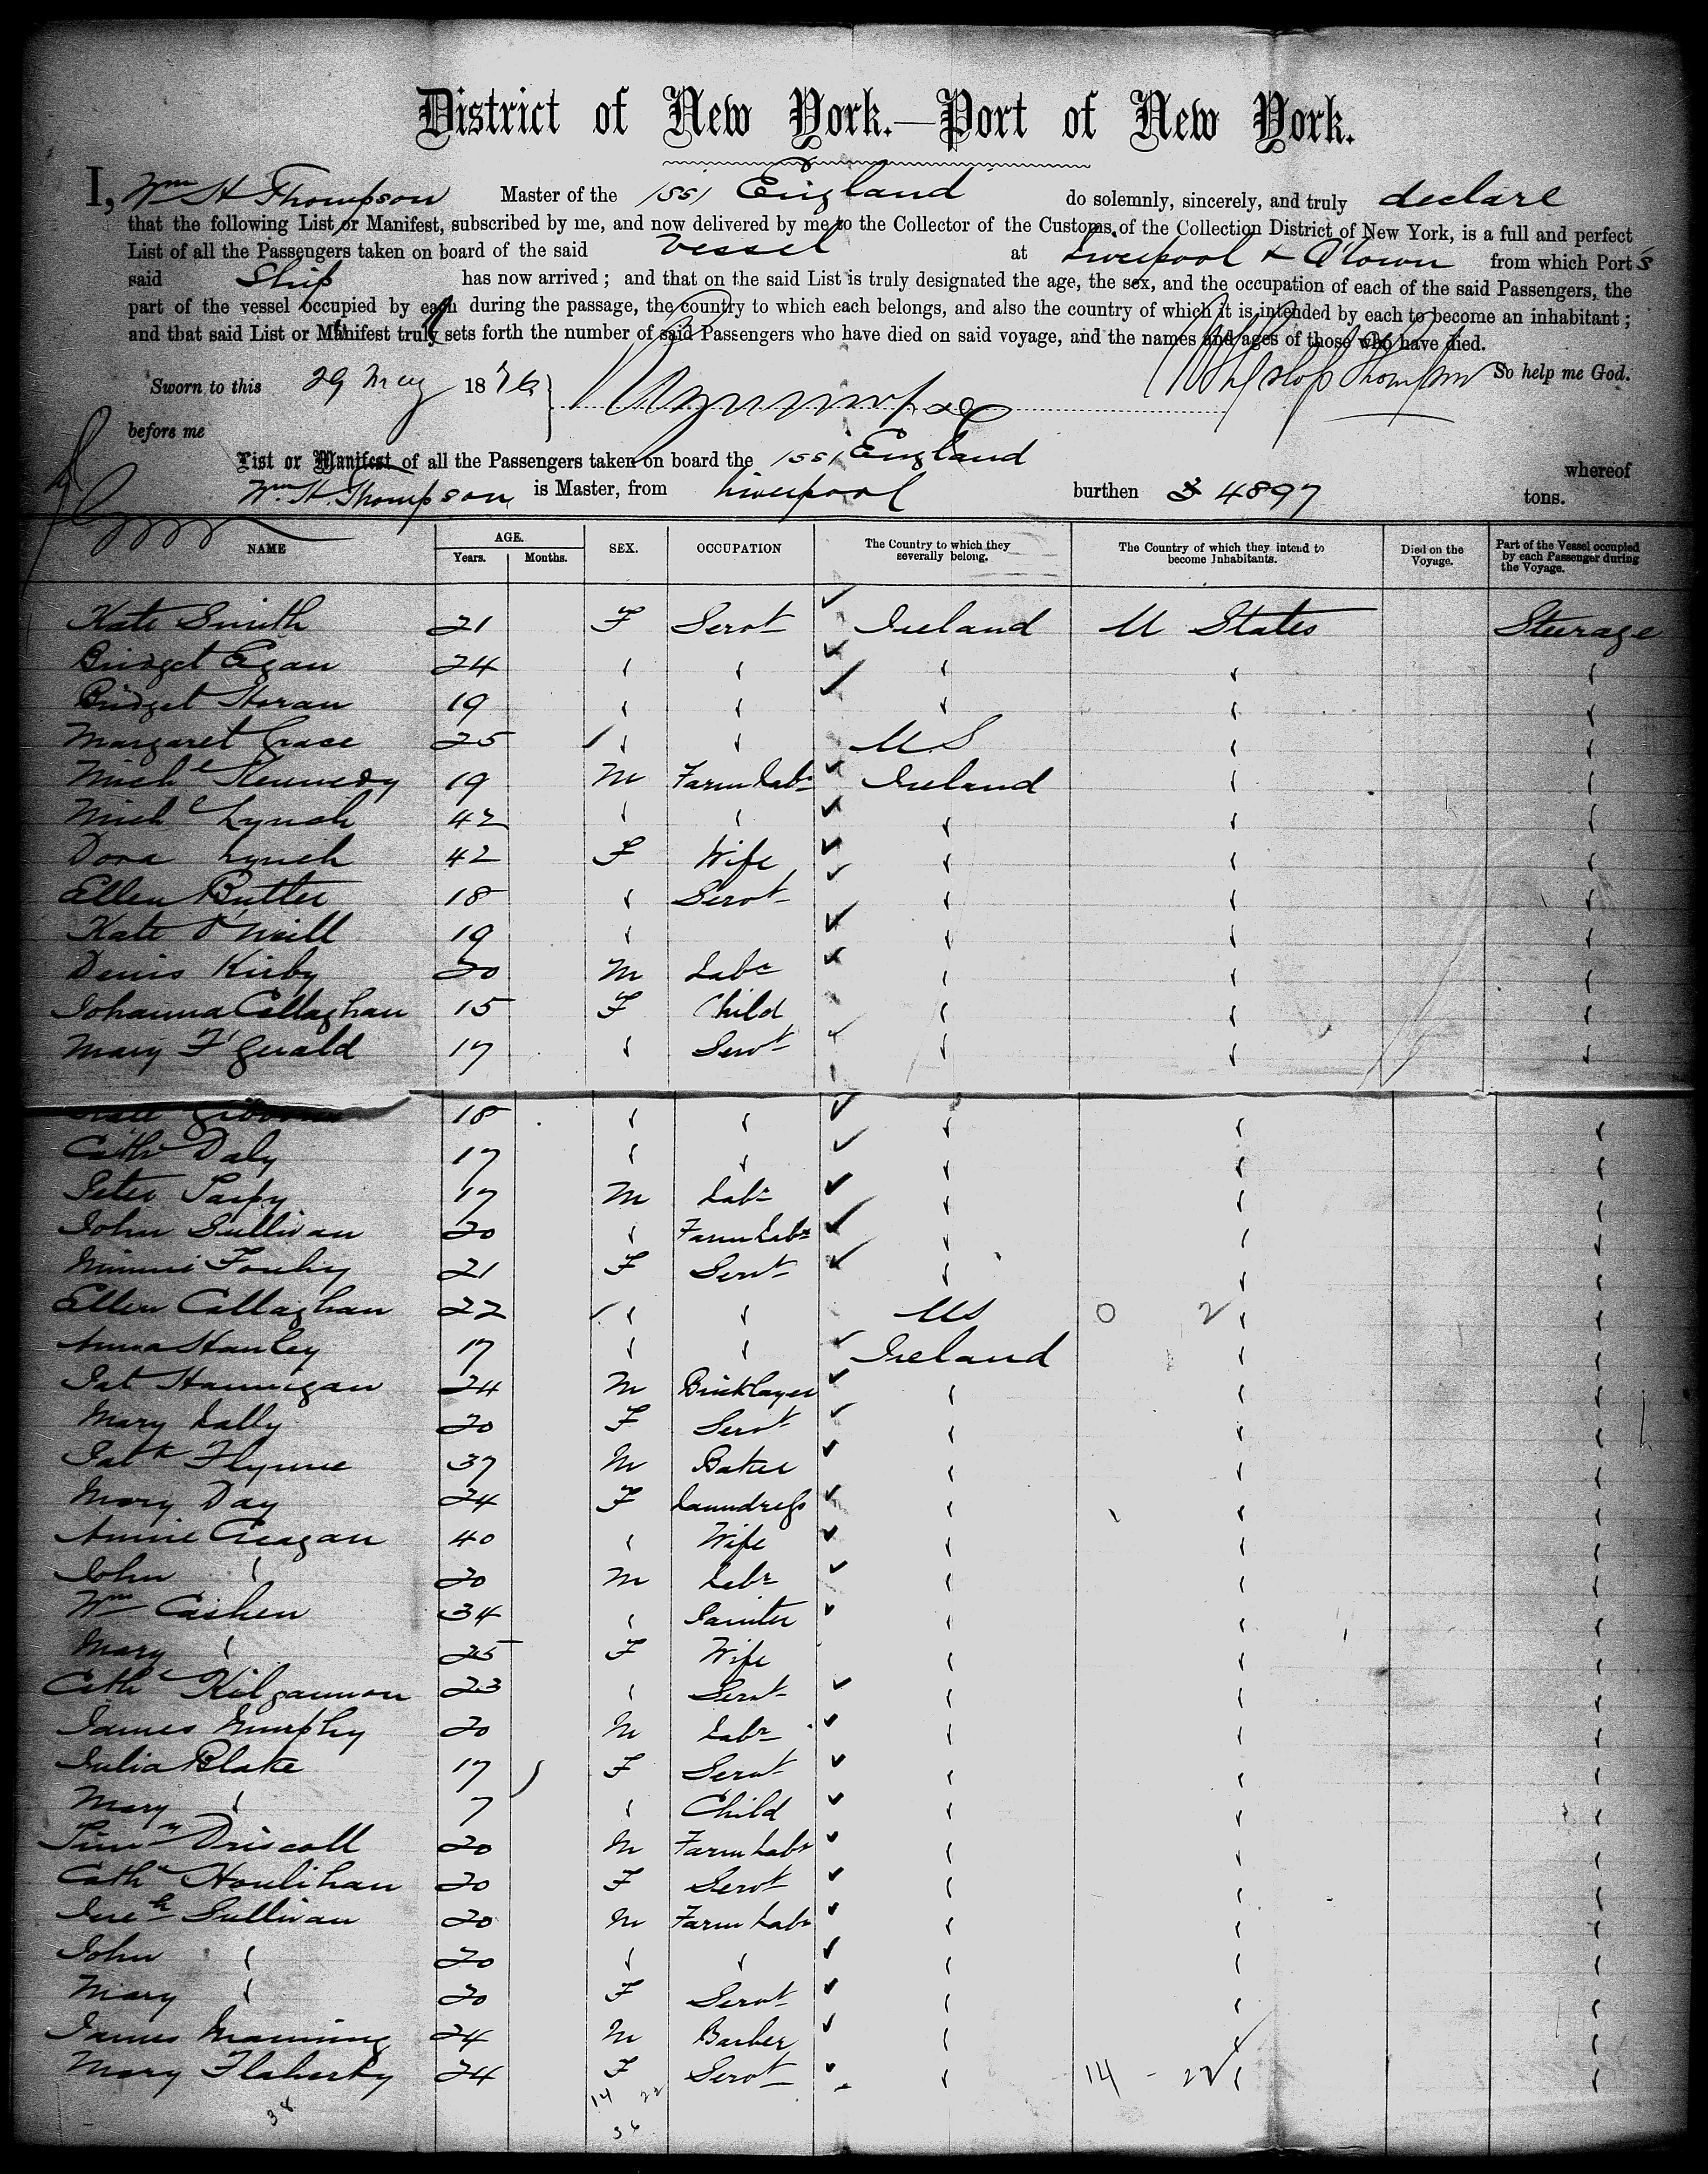 District of New York.—Port of New York.
I, Wm H Thompson Master of the /SS/ England do solemnly, sincerely, and truly declare
that the following List or Manifest, subscribed by me, and now delivered by me to the Collector of the Customs of the Collection District of New York, is a full and perfect
List of all the Passengers taken on board of the said Vessel at Liverpool & Qtown from which Ports
said Ship has now arrived; and that on the said List is truly designated the age, the sex, and the occupation of each of the said Passengers, the
part of the vessel occupied by each during the passage, the country to which each belongs, and also the country of which it is intended by each to become an inhabitant;
and that said List or Manifest truly sets forth the number of said Passengers who have died on said voyage, and the names and ages of those who have died.
Sworn to this 29 May 1876 So help me God.
before me
List or Manifest of all the Passengers taken on board the /SS/ England whereof
Wm. H. Thompson is Master, from Liverpool burthen 4897 tons.
NAME AGE. Years. Months. SEX. OCCUPATION The Country to which they severally belong. The Country of which they intend to become Inhabitants. Died on the Voyage. Part of the Vessel occupied by each Passenger during the Voyage.
Kate Smith 21 F Servt Ireland U States Steerage
Bridget Egan 24 " " " " "
Bridget Horan 19 " " " " "
Margaret Grace 25 " " U S " "
Michl Kennedy 19 M Farm Labr Ireland " "
Michl Lynch 42 " " " " "
Dora Lynch 42 F Wife " " "
Ellen Butler 18 " Servt " " "
Kate O'Neill 19 " " " "
Denis Kirby 20 M Labr " " "
Johanna Callaghan 15 F Child " " "
Mary F'Gerald 17 " Servt " " "
18 " " " " "
Cathe Daly 17 " " " " "
Peter Tarpy 17 M Labr " " "
John Sullivan 20 " Farm Labr " " "
Minnie 21 F Servt " " "
Ellen Callaghan 22 " " US 0 2 " "
Anna Hanley 17 " " Ireland " "
Pat Hannigan 24 M Bricklayer " " "
Mary Lally 20 F Servt " " "
Patk Flynne 37 M Baker " " "
Mary Day 24 F Laundress " " "
Annie Creagan 40 " Wife " " "
John " 20 M Labr " " "
Wm Cashen 34 " Painter " " "
Mary " 25 F Wife " " "
Cathe Kilgannon 23 " Servt " " "
James Murphy 20 M Labr " " "
Julia Blake 17 F Servt " " "
Mary " 7 " Child " " "
Timy Driscoll 20 M Farm Labr " " "
Cathe Houlihan 20 F Servt " " "
Jereh Sullivan 20 M Farm Labr " " "
John " 20 " " " " "
Mary " 20 F Servt " " "
James Manning 24 M Barber " " "
Mary Flaherty 24 F Servt " 14 - 22 " "
14 22
38
36